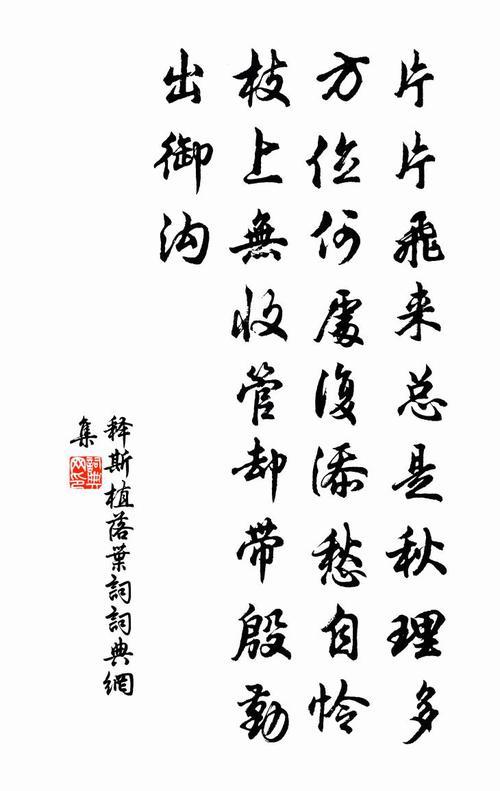 片片飛来总是秋理多
方位何處復添愁自怜
枝上無收管却帶殷勤
出御沟
释斯植落葉詞詞典網
集
詞典网印